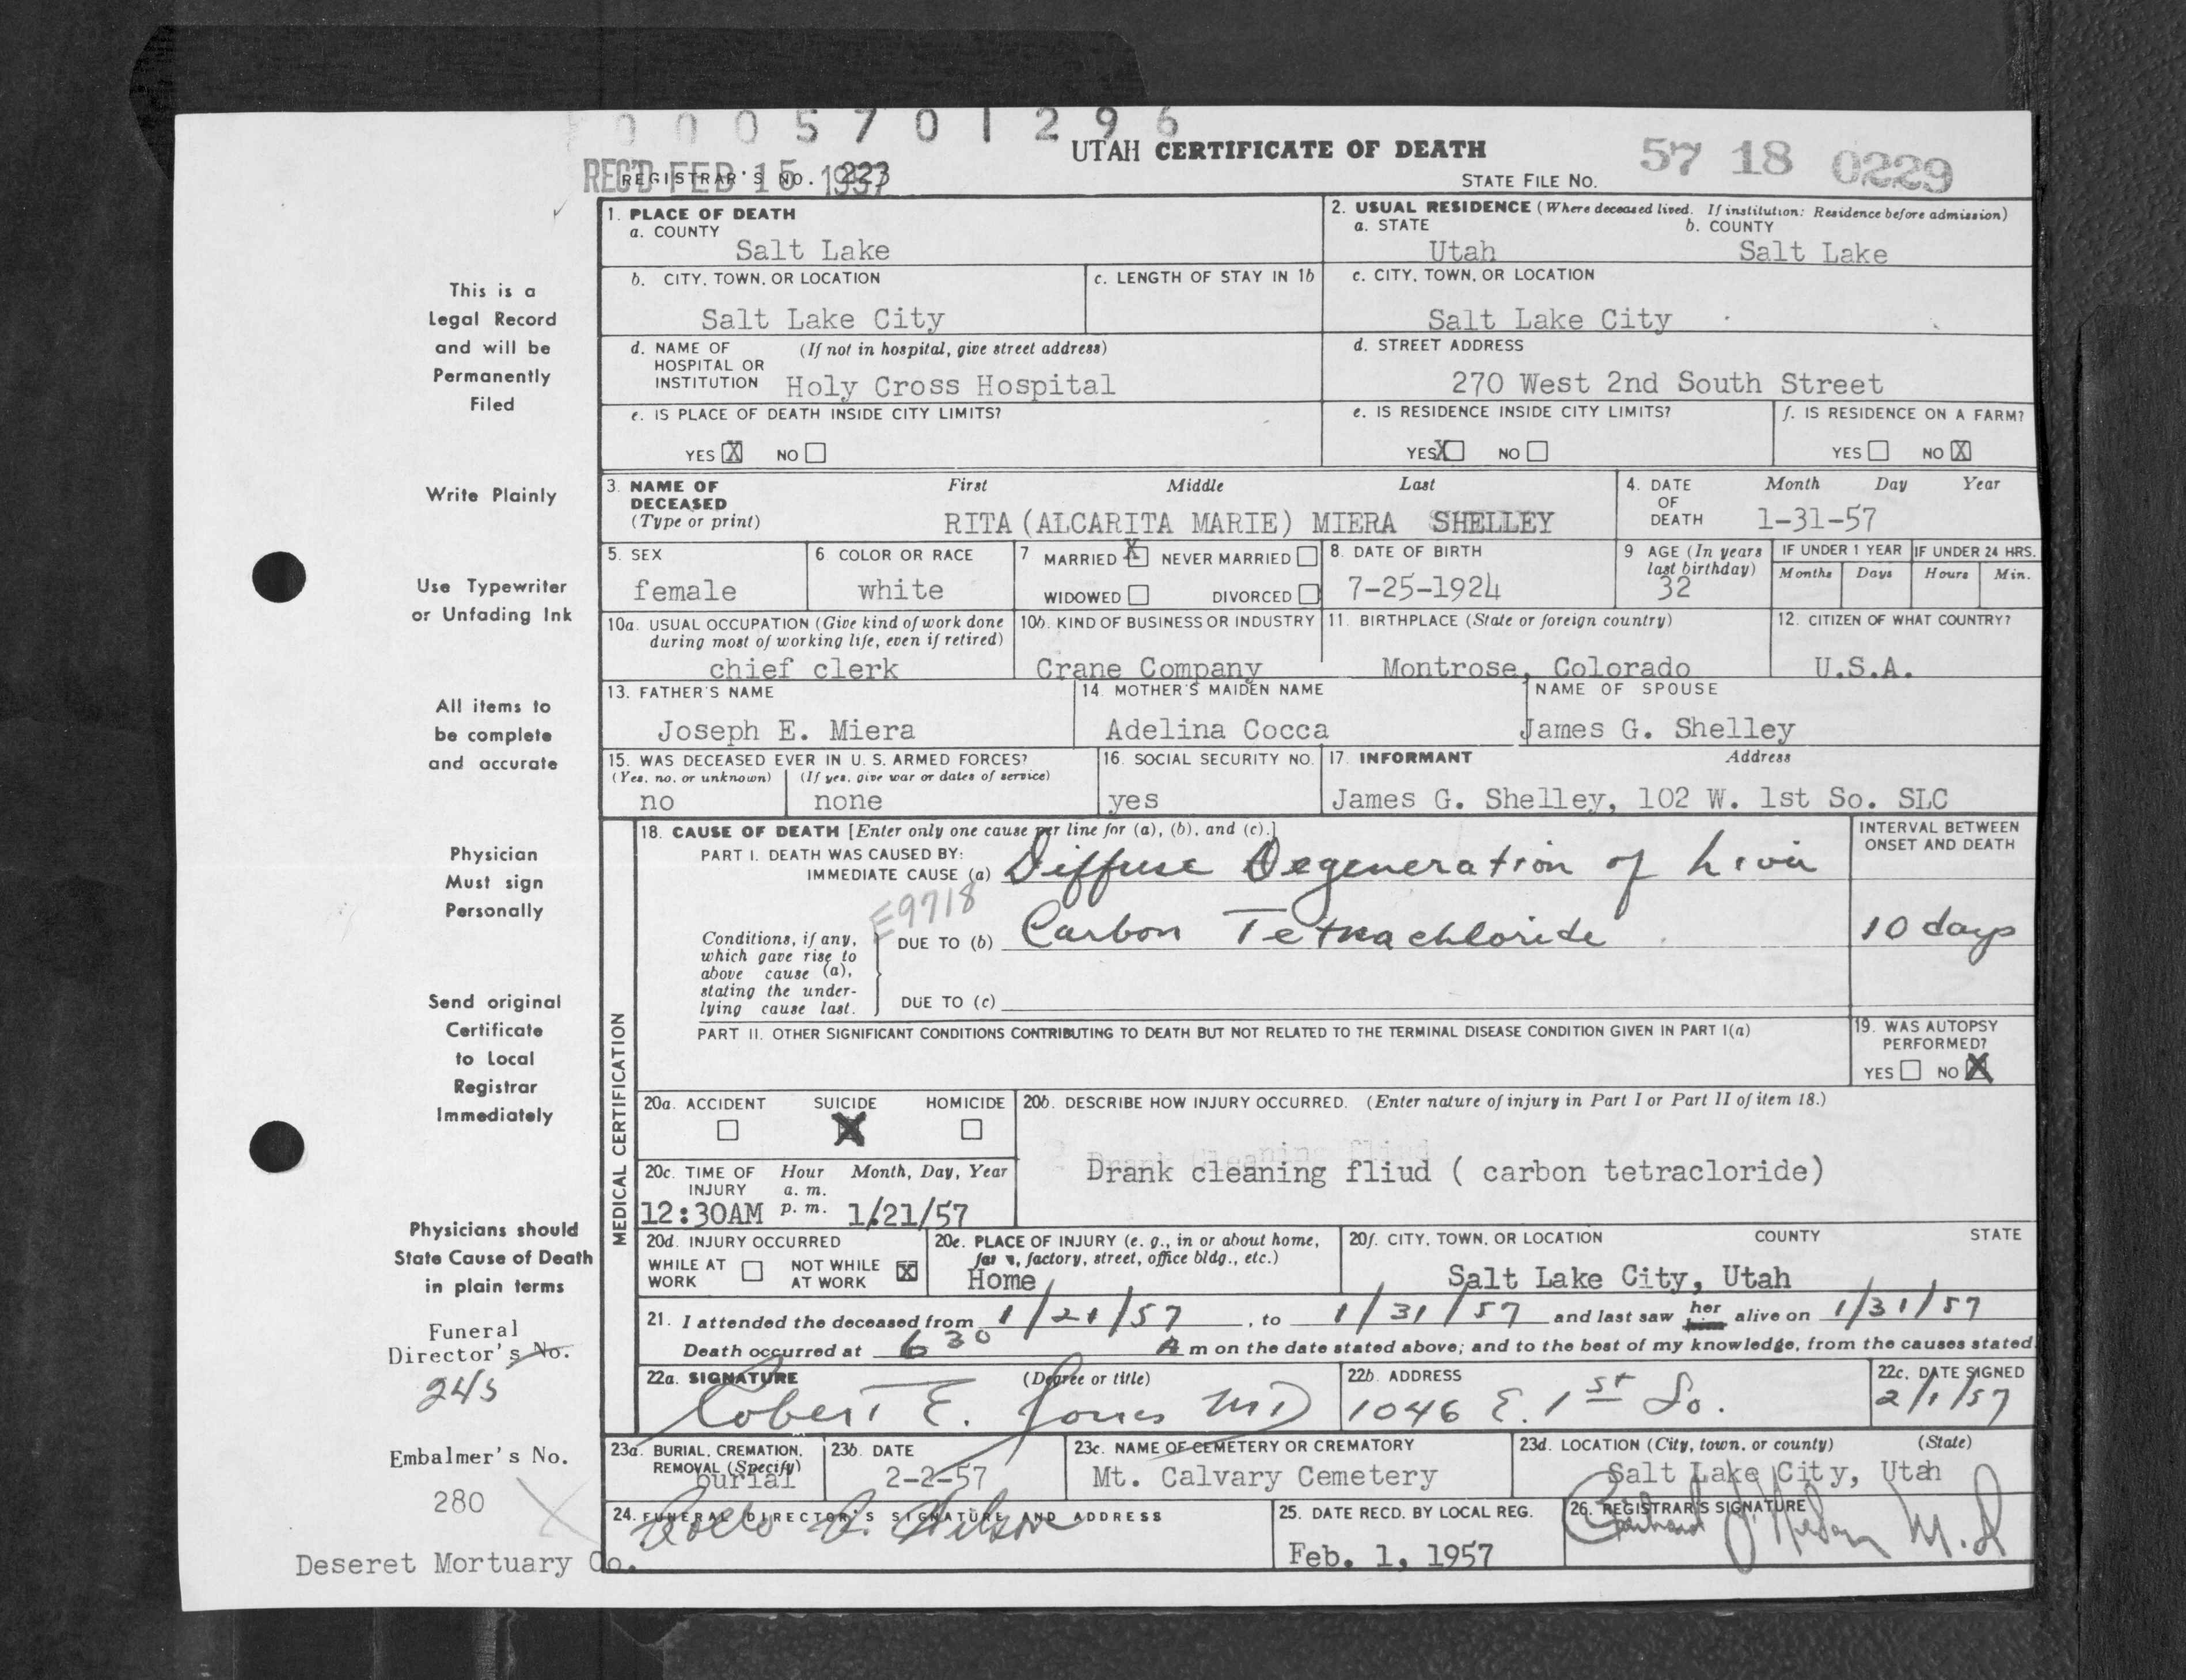 0 0 0 5 7 0 1 2 9 6
UTAH CERTIFICATE OF DEATH
57 18 0229
REC'D FEB 15 1957
REGISTRAR'S NO. 223
STATE FILE NO.
1. PLACE OF DEATH
a. COUNTY
Salt Lake
2. USUAL RESIDENCE (Where deceased lived. If institution: Residence before admission)
a. STATE b. COUNTY
Utah Salt Lake
b. CITY, TOWN, OR LOCATION
Salt Lake City
c. LENGTH OF STAY IN 1b
c. CITY, TOWN, OR LOCATION
Salt Lake City
d. NAME OF (If not in hospital, give street address)
HOSPITAL OR
INSTITUTION Holy Cross Hospital
d. STREET ADDRESS
270 West 2nd South Street
e. IS PLACE OF DEATH INSIDE CITY LIMITS?
YES X NO
e. IS RESIDENCE INSIDE CITY LIMITS?
YES X NO
f. IS RESIDENCE ON A FARM?
YES NO X
3. NAME OF DECEASED
(Type or print)
First Middle Last
RITA (ALCARITA MARIE) MIERA SHELLEY
4. DATE OF DEATH Month Day Year
1-31-57
5. SEX
female
6. COLOR OR RACE
white
7 MARRIED X NEVER MARRIED
WIDOWED DIVORCED
8. DATE OF BIRTH
7-25-1924
9 AGE (In years last birthday)
32
IF UNDER 1 YEAR IF UNDER 24 HRS.
Months Days Hours Min.
10a. USUAL OCCUPATION (Give kind of work done
during most of working life, even if retired)
chief clerk
10b. KIND OF BUSINESS OR INDUSTRY
Crane Company
11. BIRTHPLACE (State or foreign country)
Montrose, Colorado
12. CITIZEN OF WHAT COUNTRY?
U.S.A.
13. FATHER'S NAME
Joseph E. Miera
14. MOTHER'S MAIDEN NAME
Adelina Cocca
NAME OF SPOUSE
James G. Shelley
15. WAS DECEASED EVER IN U. S. ARMED FORCES?
(Yes, no, or unknown) (If yes, give war or dates of service)
no none
16. SOCIAL SECURITY NO.
yes
17. INFORMANT Address
James G. Shelley, 102 W. 1st So. SLC
MEDICAL CERTIFICATION
18. CAUSE OF DEATH [Enter only one cause per line for (a), (b), and (c).]
PART I. DEATH WAS CAUSED BY:
IMMEDIATE CAUSE (a) Diffuse Degeneration of Liver
INTERVAL BETWEEN
ONSET AND DEATH
E9718
Conditions, if any,
which gave rise to
above cause (a),
stating the under-
lying cause last.
DUE TO (b) Carbon Tetrachloride
10 days
DUE TO (c)
PART II. OTHER SIGNIFICANT CONDITIONS CONTRIBUTING TO DEATH BUT NOT RELATED TO THE TERMINAL DISEASE CONDITION GIVEN IN PART I(a)
19. WAS AUTOPSY
PERFORMED?
YES NO X
20a. ACCIDENT SUICIDE HOMICIDE
X
20b. DESCRIBE HOW INJURY OCCURRED. (Enter nature of injury in Part I or Part II of item 18.)
Drank cleaning fliud ( carbon tetracloride)
20c. TIME OF INJURY Hour Month, Day, Year
a. m.
p. m.
12:30AM 1/21/57
20d. INJURY OCCURRED
WHILE AT WORK NOT WHILE AT WORK X
20e. PLACE OF INJURY (e. g., in or about home,
farm, factory, street, office bldg., etc.)
Home
20f. CITY, TOWN, OR LOCATION COUNTY STATE
Salt Lake City, Utah
21. I attended the deceased from 1/21/57, to 1/31/57 and last saw her him alive on 1/31/57
Death occurred at 6 30 A m on the date stated above; and to the best of my knowledge, from the causes stated
22a. SIGNATURE (Degree or title)
Robert E. Jones MD
22b. ADDRESS
1046 E. 1st So.
22c. DATE SIGNED
2/1/57
23a. BURIAL, CREMATION,
REMOVAL (Specify)
burial
23b. DATE
2-2-57
23c. NAME OF CEMETERY OR CREMATORY
Mt. Calvary Cemetery
23d. LOCATION (City, town, or county) (State)
Salt Lake City, Utah
24. FUNERAL DIRECTOR'S SIGNATURE AND ADDRESS
25. DATE RECD. BY LOCAL REG.
Feb. 1, 1957
26. REGISTRAR'S SIGNATURE
M.D
This is a
Legal Record
and will be
Permanently
Filed
Write Plainly
Use Typewriter
or Unfading Ink
All items to
be complete
and accurate
Physician
Must sign
Personally
Send original
Certificate
to Local
Registrar
Immediately
Physicians should
State Cause of Death
in plain terms
Funeral
Director's No.
245
Embalmer's No.
280
Deseret Mortuary Co.